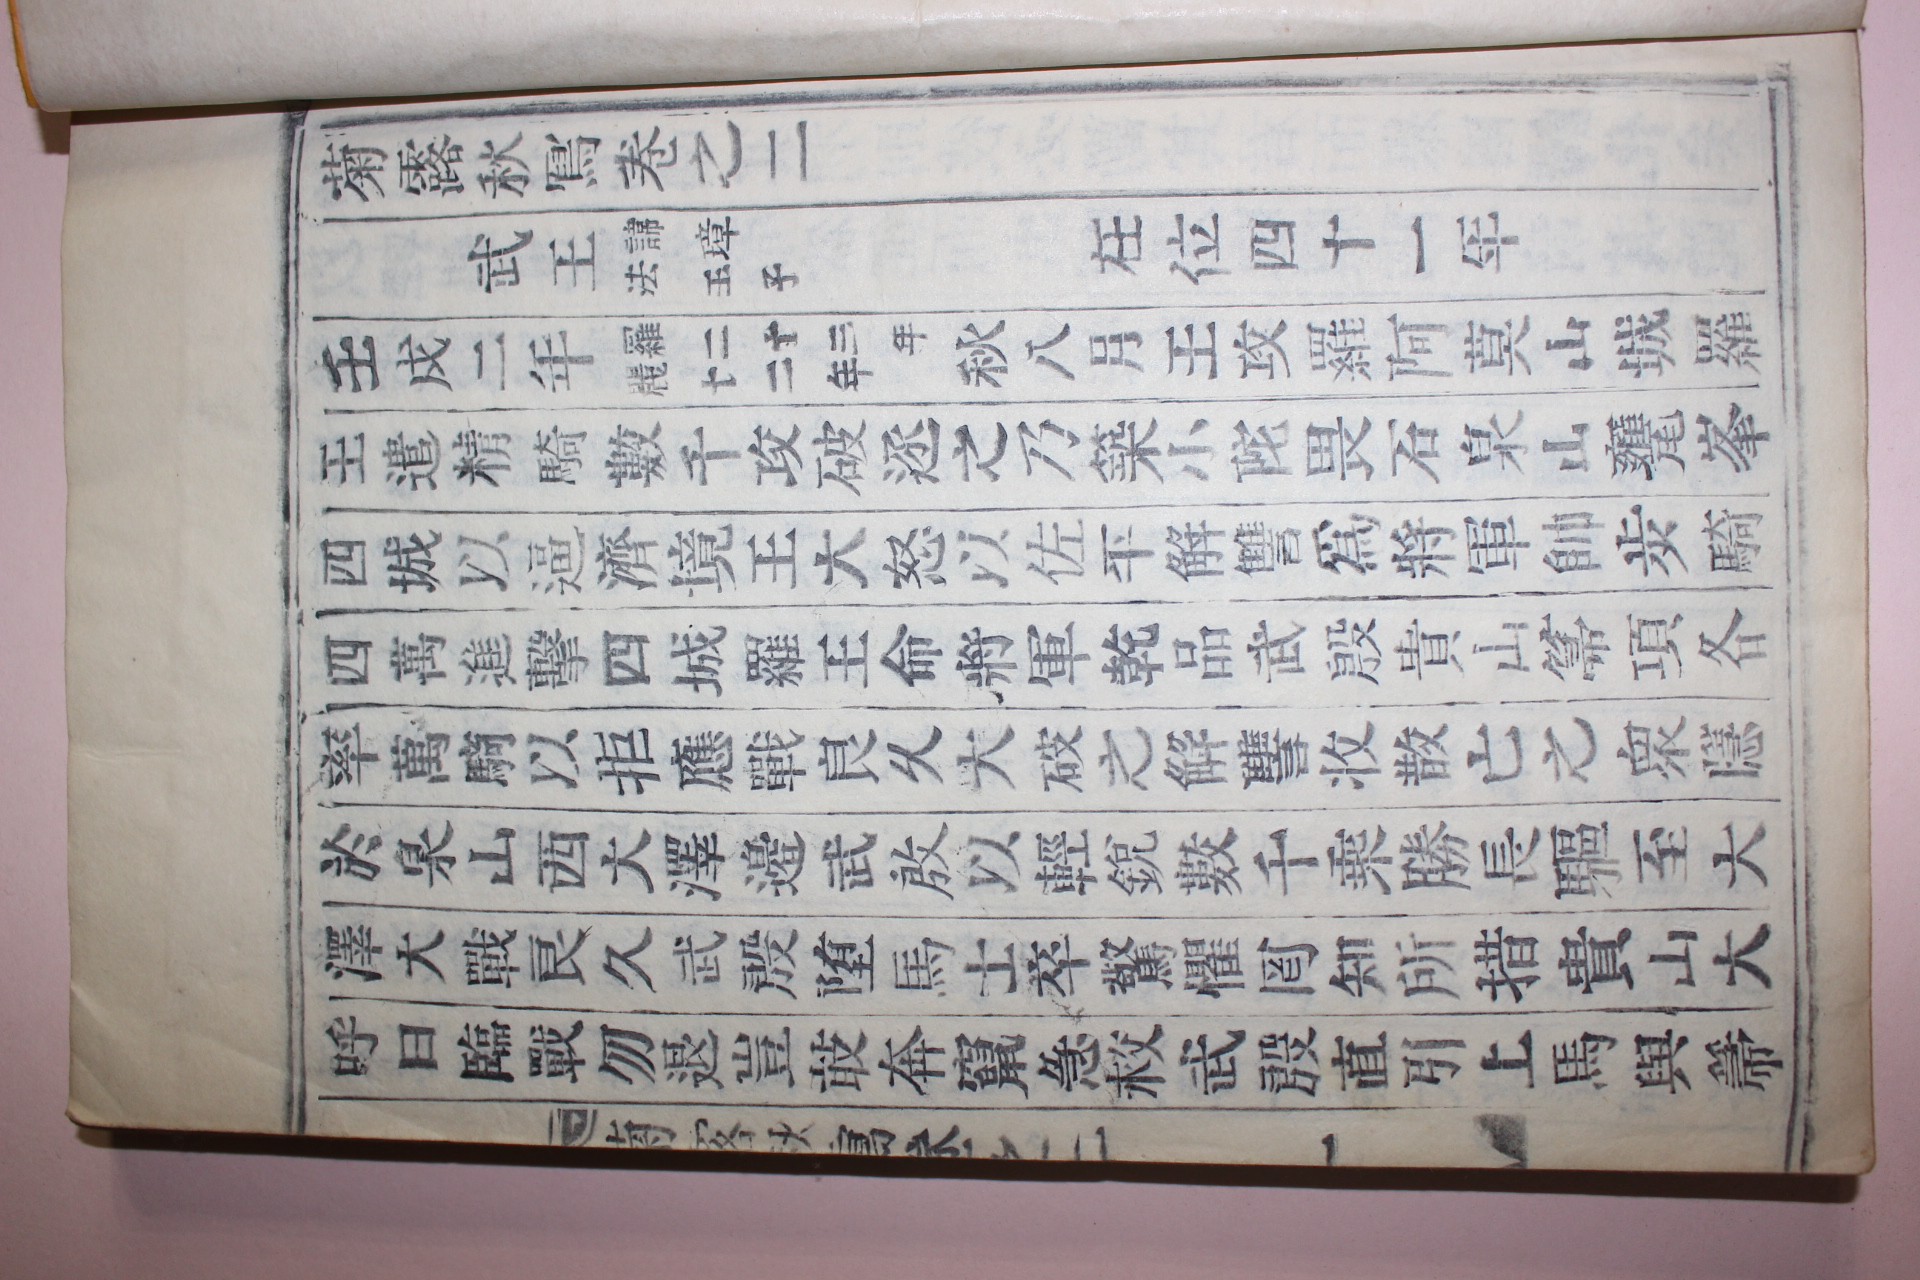 菊露秋寫卷之二
武王諱璋法王子 在位四十一年
壬戌二年羅二十三年麗十二年秋八月王攻羅阿莫山城羅
王遣精騎數千攻破逐之乃築小陁畏石泉山甕峯
四城以逼濟境王大怒以佐平解讐爲將軍帥步騎
四萬進擊四城羅王命將軍乾品武殷貴山箒項各
率萬騎以拒應戰良久大破之解讐收散亡之衆隱
於泉山西大澤邊武殷以輕銳數千乘勝長驅至大
澤大戰良久武殷墮馬士卒驚懼罔知所措貴山大
呼曰臨戰勿退豈敢奔竄急救武殷直引上馬與箒